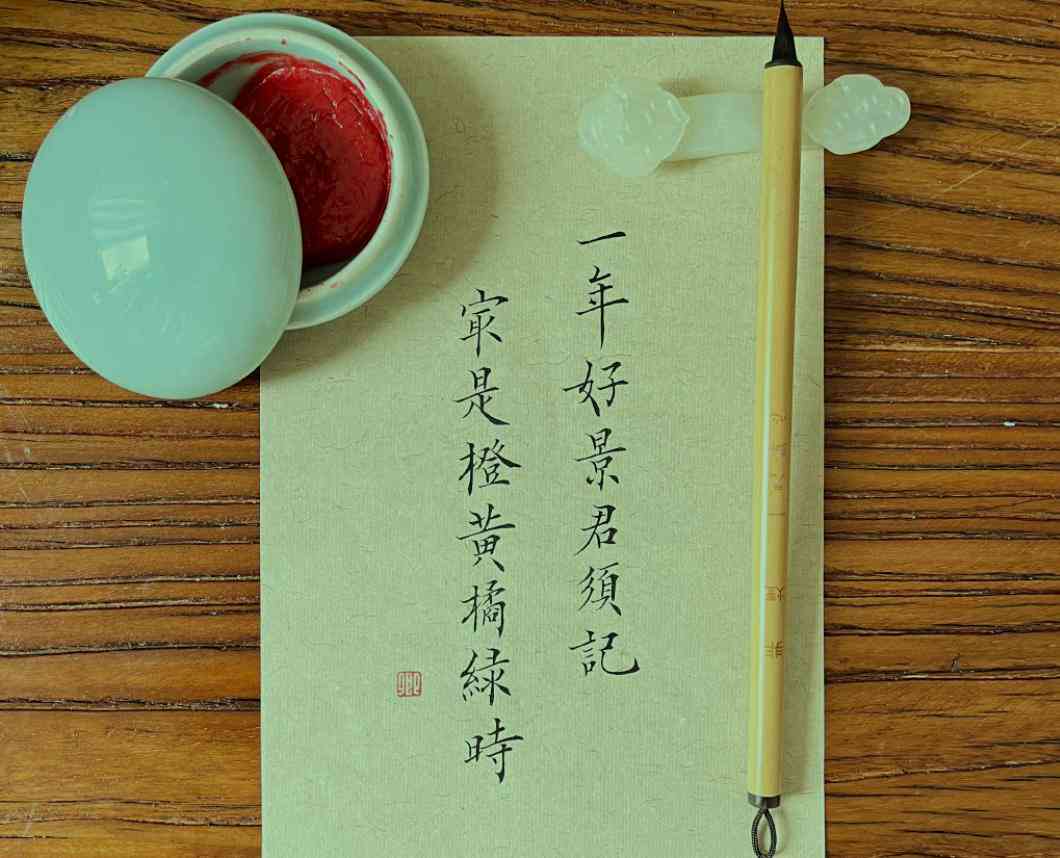 一年好景君須記
冣是橙黃橘緑時